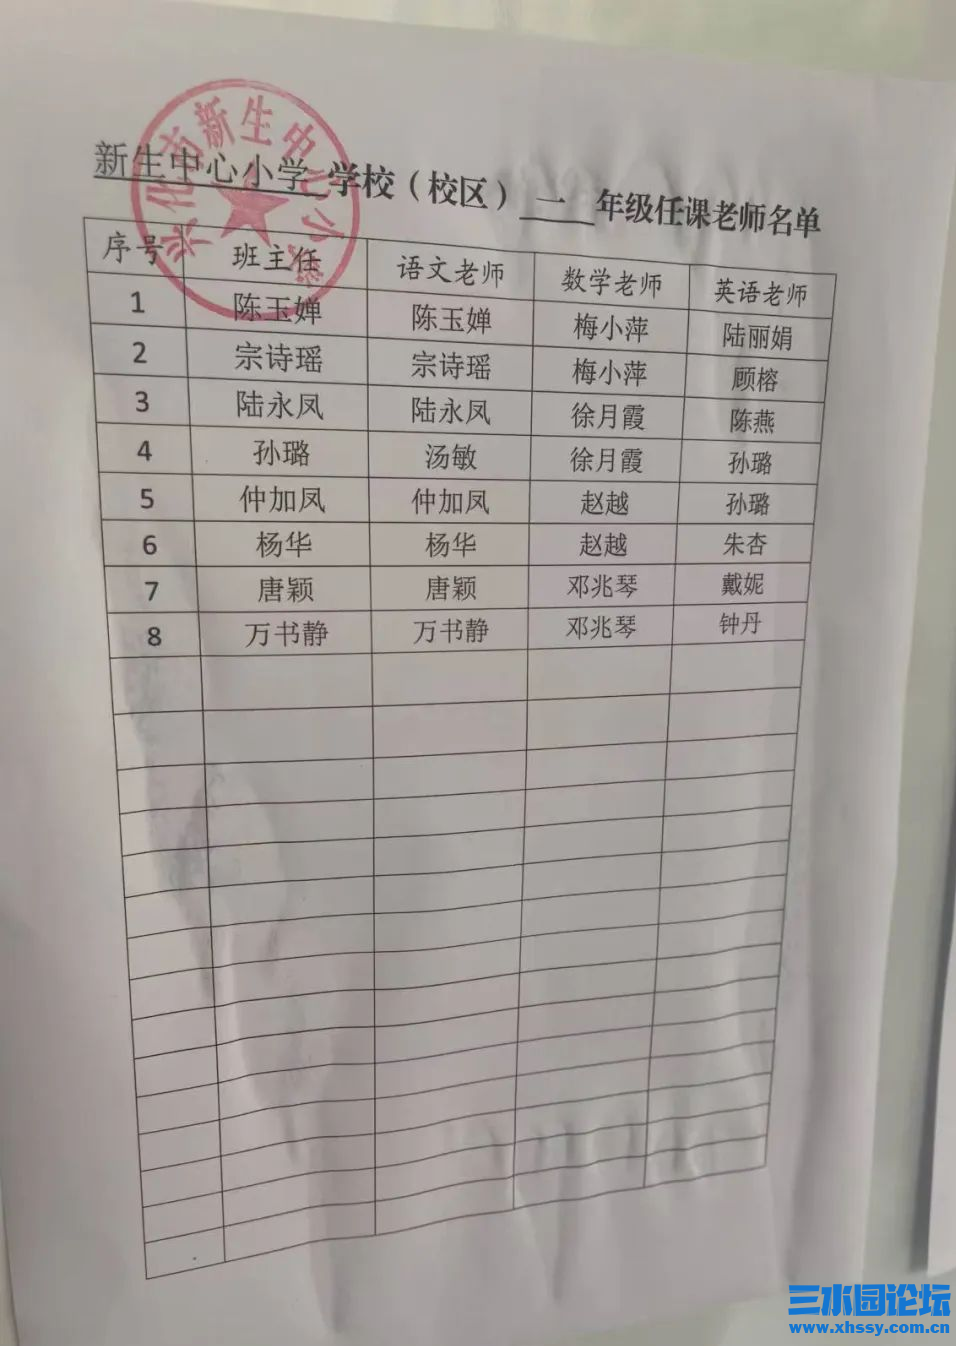 兴化市新生中心小学
新生中心小学 学校（校区） 二 年级任课老师名单
序号 班主任 语文老师 数学老师 英语老师
1 陈玉婵 陈玉婵 梅小萍 陆丽娟
2 宗诗瑶 宗诗瑶 梅小萍 顾榕
3 陆永凤 陆永凤 徐月霞 陈燕
4 孙璐 汤敏 徐月霞 孙璐
5 仲加凤 仲加凤 赵越 孙璐
6 杨华 杨华 赵越 朱杏
7 唐颖 唐颖 邓兆琴 戴妮
8 万书静 万书静 邓兆琴 钟丹
三水园论坛
www.xhssy.com.cn